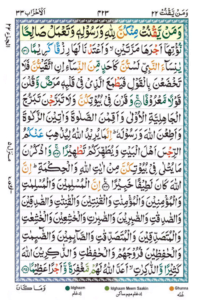 وَمَنْ يَّقْنُتْ ٢٢
٤٢٣
الْاَحْزَاب ٣٣
وَمَنْ يَّقْنُتْ مِنْكُنَّ لِلّٰهِ وَرَسُوْلِهٖ وَتَعْمَلْ صَالِحًا
نُّؤْتِهَآ اَجْرَهَا مَرَّتَيْنِ ۙ وَاَعْتَدْنَا لَهَا رِزْقًا كَرِيْمًا
يٰنِسَآءَ النَّبِيِّ لَسْتُنَّ كَاَحَدٍ مِّنَ النِّسَآءِ اِنِ اتَّقَيْتُنَّ فَلَا
تَخْضَعْنَ بِالْقَوْلِ فَيَطْمَعَ الَّذِيْ فِيْ قَلْبِهٖ مَرَضٌ وَّقُلْنَ
قَوْلًا مَّعْرُوْفًا ۚ وَقَرْنَ فِيْ بُيُوْتِكُنَّ وَلَا تَبَرَّجْنَ تَبَرُّجَ
الْجَاهِلِيَّةِ الْاُوْلٰى وَاَقِمْنَ الصَّلٰوةَ وَاٰتِيْنَ الزَّكٰوةَ
وَاَطِعْنَ اللّٰهَ وَرَسُوْلَهٗ ۭ اِنَّمَا يُرِيْدُ اللّٰهُ لِيُذْهِبَ عَنْكُمُ
الرِّجْسَ اَهْلَ الْبَيْتِ وَيُطَهِّرَكُمْ تَطْهِيْرًا ۚ وَاذْكُرْنَ
مَا يُتْلٰى فِيْ بُيُوْتِكُنَّ مِنْ اٰيٰتِ اللّٰهِ وَالْحِكْمَةِ ۭ اِنَّ
اللّٰهَ كَانَ لَطِيْفًا خَبِيْرًا اِنَّ الْمُسْلِمِيْنَ وَالْمُسْلِمٰتِ
وَالْمُؤْمِنِيْنَ وَالْمُؤْمِنٰتِ وَالْقٰنِتِيْنَ وَالْقٰنِتٰتِ وَالصّٰدِقِيْنَ
وَالصّٰدِقٰتِ وَالصّٰبِرِيْنَ وَالصّٰبِرٰتِ وَالْخٰشِعِيْنَ وَالْخٰشِعٰتِ
وَالْمُتَصَدِّقِيْنَ وَالْمُتَصَدِّقٰتِ وَالصَّآئِمِيْنَ وَالصّٰٓئِمٰتِ
وَالْحٰفِظِيْنَ فُرُوْجَهُمْ وَالْحٰفِظٰتِ وَالذّٰكِرِيْنَ اللّٰهَ
كَثِيْرًا وَّالذّٰكِرٰتِ ۙ اَعَدَّ اللّٰهُ لَهُمْ مَّغْفِرَةً وَّاَجْرًا عَظِيْمًا
وَمَا كَانَ